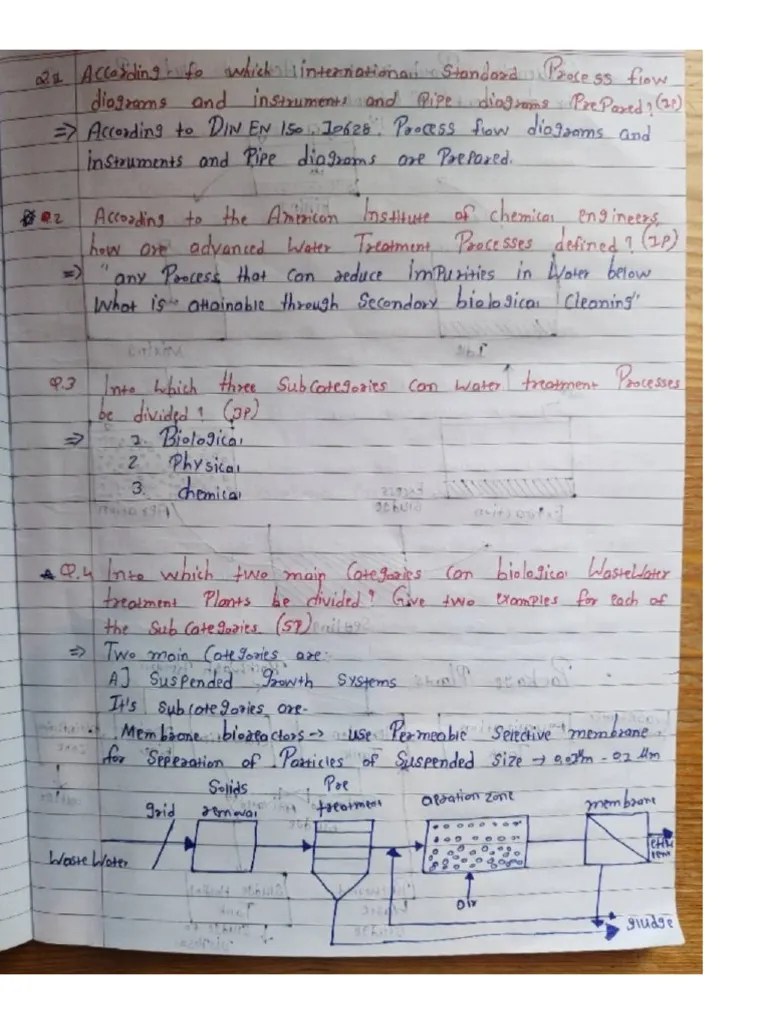 Q.1 According to which international Standard Process flow
diagrams and instruments and Pipe diagrams PrePared? (1P)
=> According to DIN EN ISO. 10628. Process flow diagrams and
instruments and Pipe diagrams are PrePared.
Q.2 According to the American Institute of chemical engineers,
how are advanced Water Treatment Processes defined? (1P)
=> "any Process that can reduce imPurities in Water below
What is attainable through Secondary biological Cleaning"
Q.3 Into which three Subcategories can water treatment Processes
be divided? (3P)
=> 1. Biological
2. Physical
3. chemical
Q.4 Into which two main Categories can biological WasteWater
treatment Plants be divided? Give two examples for each of
the Sub Categories. (5P)
=> Two main Categories are:
A] Suspended Growth Systems
It's subcategories are-
Membrane bioreactors -> use Permeable Selective membrane
for Seperation of Particles of Suspended Size ->
Solids removal
Pre treatment
aeration zone
membrane
grid
Waste Water
air